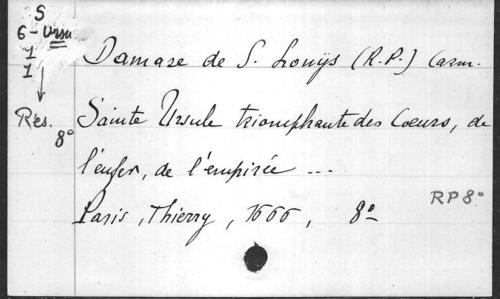 S
6-Ursu
1
1
Rés.
8º
Damase de S. Louÿs (R.P.) Carm.
Sainte Ursule triomphante des Coeurs, de
l'enfer, de l'empirée ...
Paris, Thierry, 1666, 8º
RP 8º